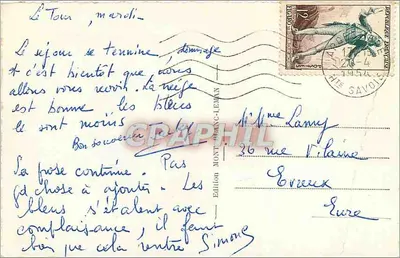 Le Tour, mardi -
Le séjour se termine, dommage
& c'est bientôt que nous
allons vous revoir. La neige
est bonne les bleus
le sont moins
Bon souvenir
La prose continue. Pas
gd chose à ajouter. Les
bleus s'étalent avec
complaisance, il faut
bien que cela rentre Simone
Edition MONT-BLANC-LEMAN
REPUBLIQUE FRANÇAISE
20-4
1954
HTE SAVOIE
Mme Lamy
36 rue Vilaine
Evreux
Eure
CARTOGRAPHIL